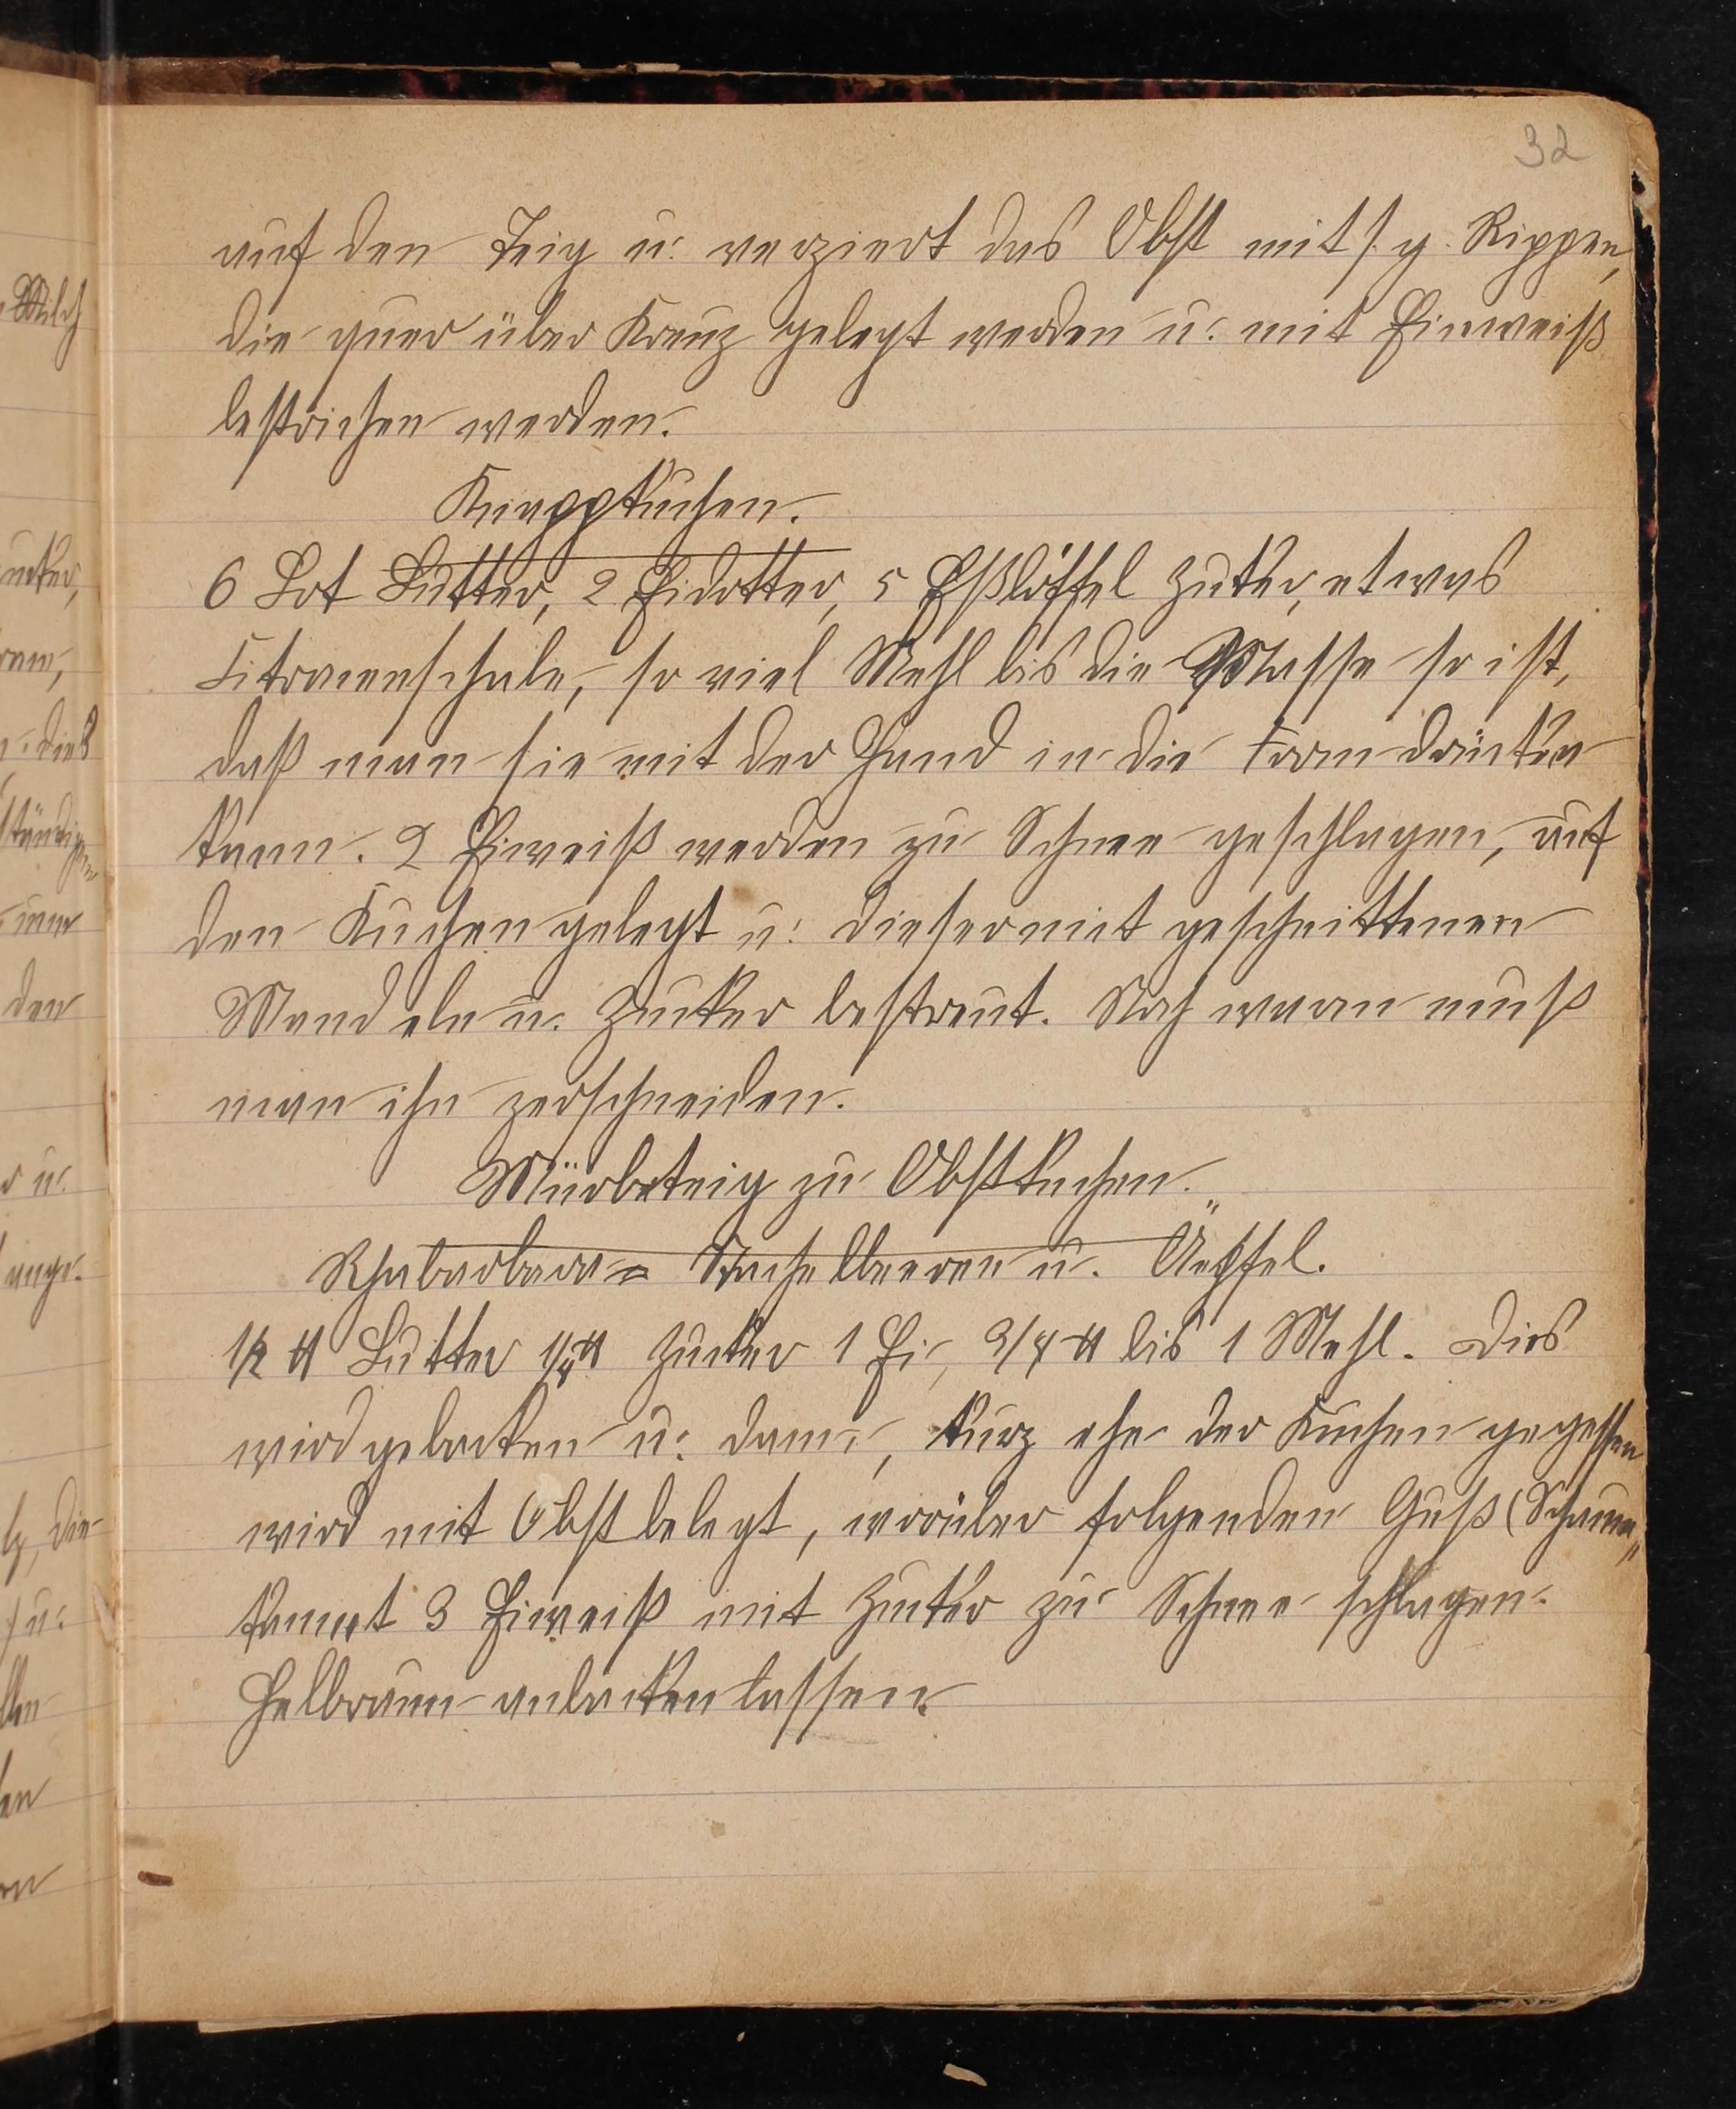 32
auf den Teig u. verziert das Obst mit s. g. Rippen,
die quer über Kreuz gelegt werden u. mit Einweiß
bestrichen werden.
Knappkuchen.
6 Lot Butter, 2 Eidotter, 5 Eßlöffel Zucker, etwas
Citronenschale, so viel Mehl bis die Masse so ist,
daß man sie mit der Hand in die Form drücken
kann. 2 Eiweiß werden zu Schnee geschlagen, auf
den Kuchen gelegt u. dieser mit geschnittenen
Mandeln u. Zucker bestreut. Noch warm muß
man ihn zerschneiden.
Mürbeteig zu Obstkuchen.
Rhabarbar- Stachelbeeren u. Äepfel.
1/2 ℔ Butter 1/4 ℔ Zucker 1 Ei, 3/4 ℔ bis 1 Mehl. Dies
wird gebacken u. dann, kurz ehe der Kuchen gegessen
wird mit Obst belegt, worüber folgenden Guß (Schaum„
kommt 3 Eiweiß mit Zucker zu Schnee schlagen.
Helbraun anbacken lassen.
Milch
dies
den
u.
die
u.